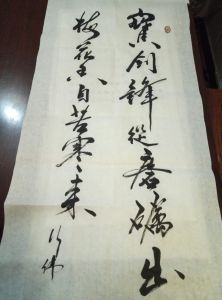 寳劍鋒從磨礪出
梅花香自苦寒來